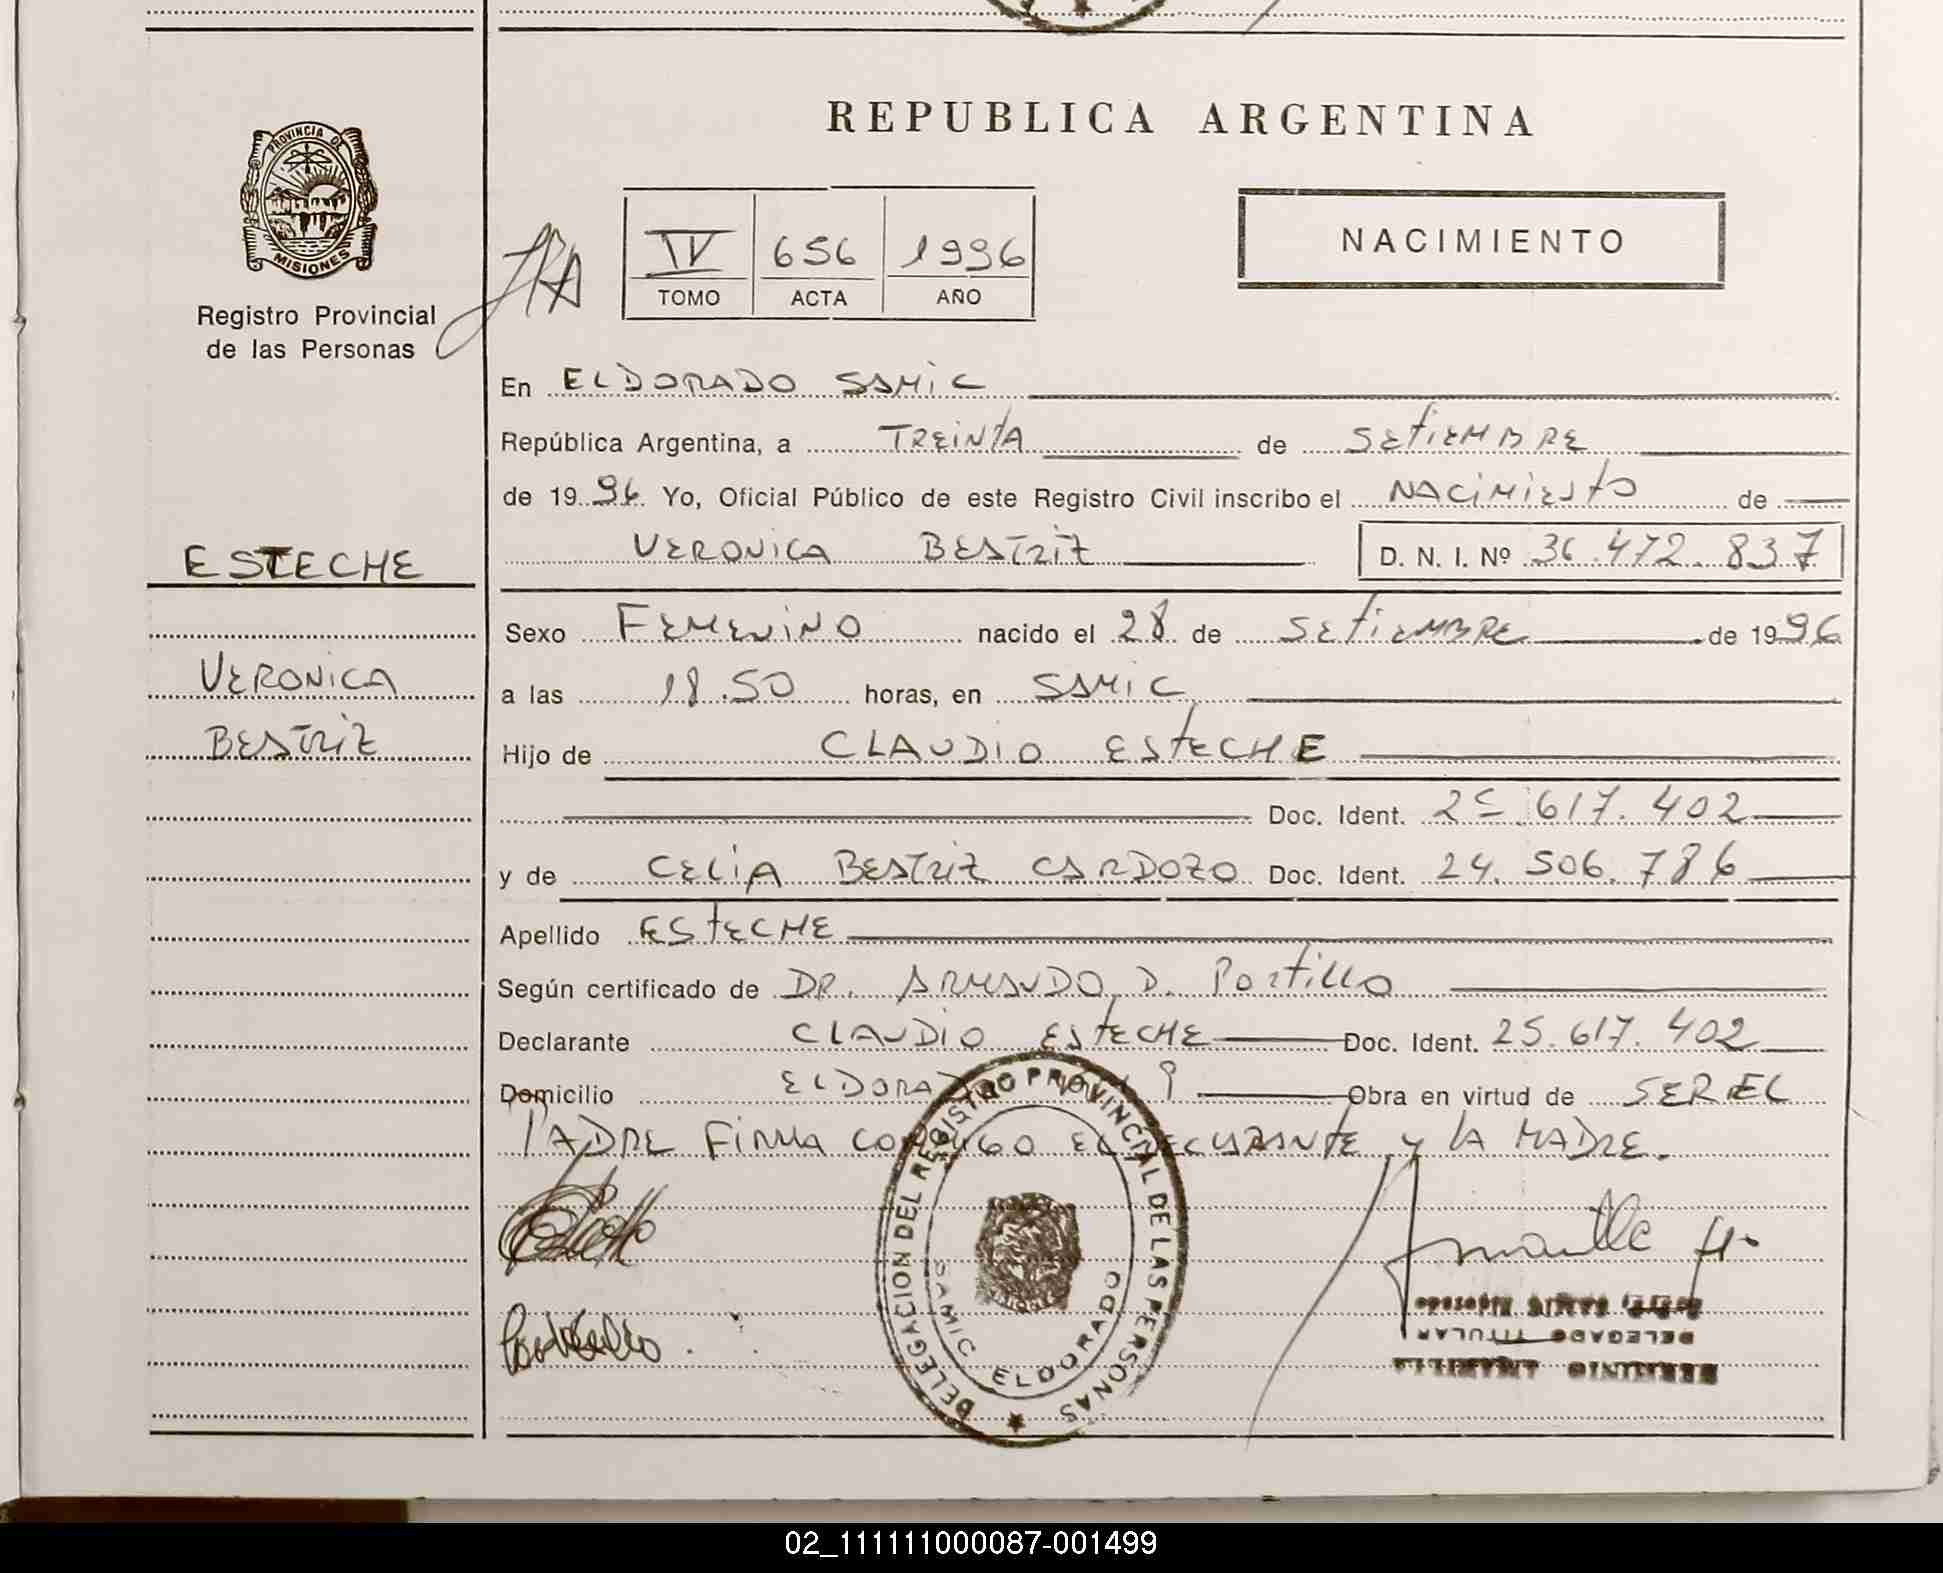 REPUBLICA ARGENTINA
PROVINCIA DE
MISIONES
Registro Provincial
de las Personas
IV 656 1996
TOMO ACTA AÑO
NACIMIENTO
En ELDORADO SAMIC
República Argentina, a TREINTA de SETIEMBRE
de 1996 Yo, Oficial Público de este Registro Civil inscribo el NACIMIENTO de
VERONICA BEATRIZ D. N. I. Nº 36.472.837
ESTECHE
VERONICA
BEATRIZ
Sexo FEMENINO nacido el 28 de SETIEMBRE de 1996
a las 18.50 horas, en SAMIC
Hijo de CLAUDIO ESTECHE
Doc. Ident. 25.617.402
y de CELIA BEATRIZ CARDOZO Doc. Ident. 24.506.786
Apellido ESTECHE
Según certificado de DR. ARMANDO D. Portillo
Declarante CLAUDIO ESTECHE Doc. Ident. 25.617.402
Domicilio ELDORADO 9 Obra en virtud de SER EL
PADRE FIRMA CONMIGO EL DECLARANTE y LA MADRE.
DELEGACION DEL REGISTRO PROVINCIAL DE LAS PERSONAS
SAMIC ELDORADO
DELEGADO TITULAR
02_111111000087-001499